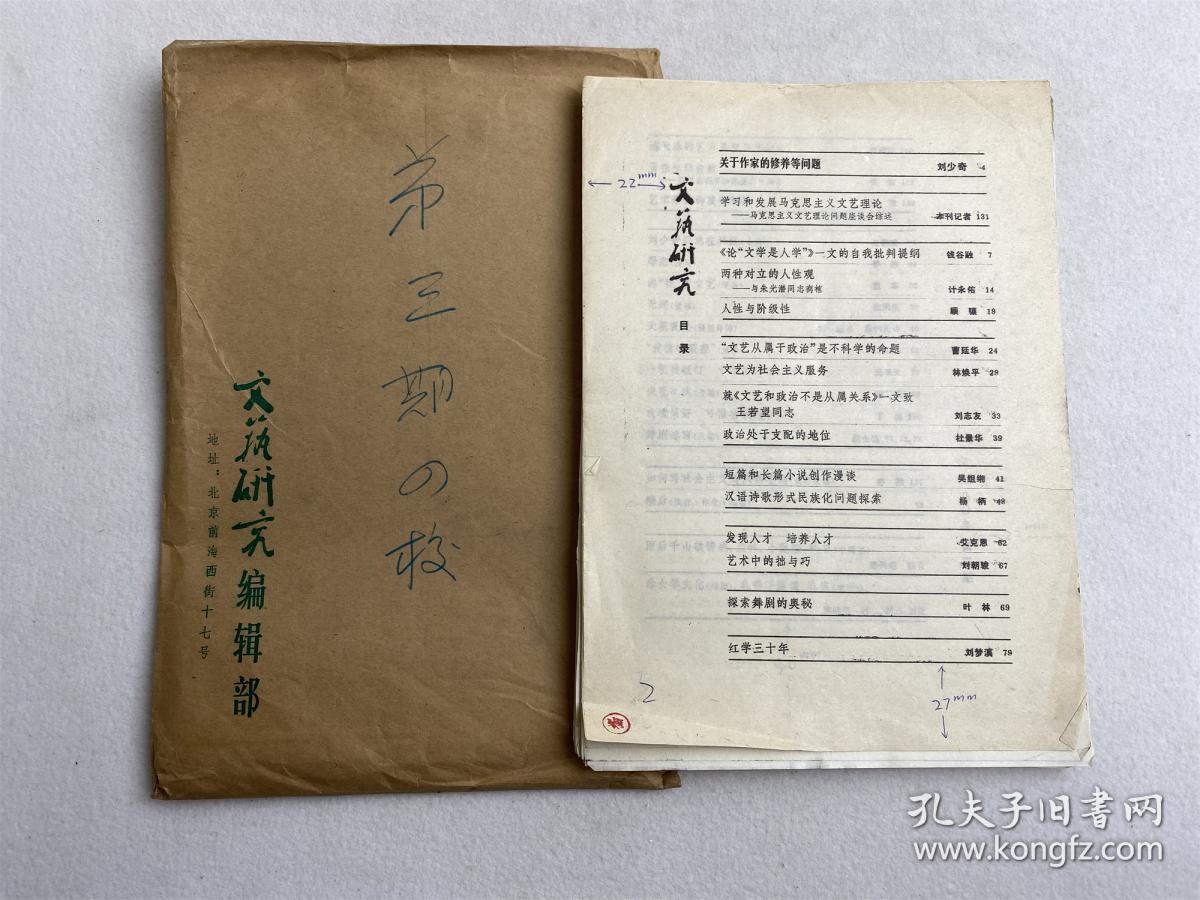 第三期の校
文艺研究编辑部
地址：北京前海西街十七号
文艺研究
目录
22mm
关于作家的修养等问题 刘少奇 4
学习和发展马克思主义文艺理论
——马克思主义文艺理论问题座谈会综述 本刊记者 131
《论“文学是人学”》一文的自我批判提纲 钱谷融 7
两种对立的人性观
——与朱光潜同志商榷 计永佑 14
人性与阶级性 顾骧 19
“文艺从属于政治”是不科学的命题 曹廷华 24
文艺为社会主义服务 林焕平 29
就《文艺和政治不是从属关系》一文致
王若望同志 刘志友 33
政治处于支配的地位 杜景华 39
短篇和长篇小说创作漫谈 吴组缃 41
汉语诗歌形式民族化问题探索 杨柄 48
发现人才 培养人才 艾克恩 62
艺术中的拙与巧 刘朝骏 67
探索舞剧的奥秘 叶林 69
红学三十年 刘梦溪 79
2
27mm
孔夫子旧书网
www.kongfz.com